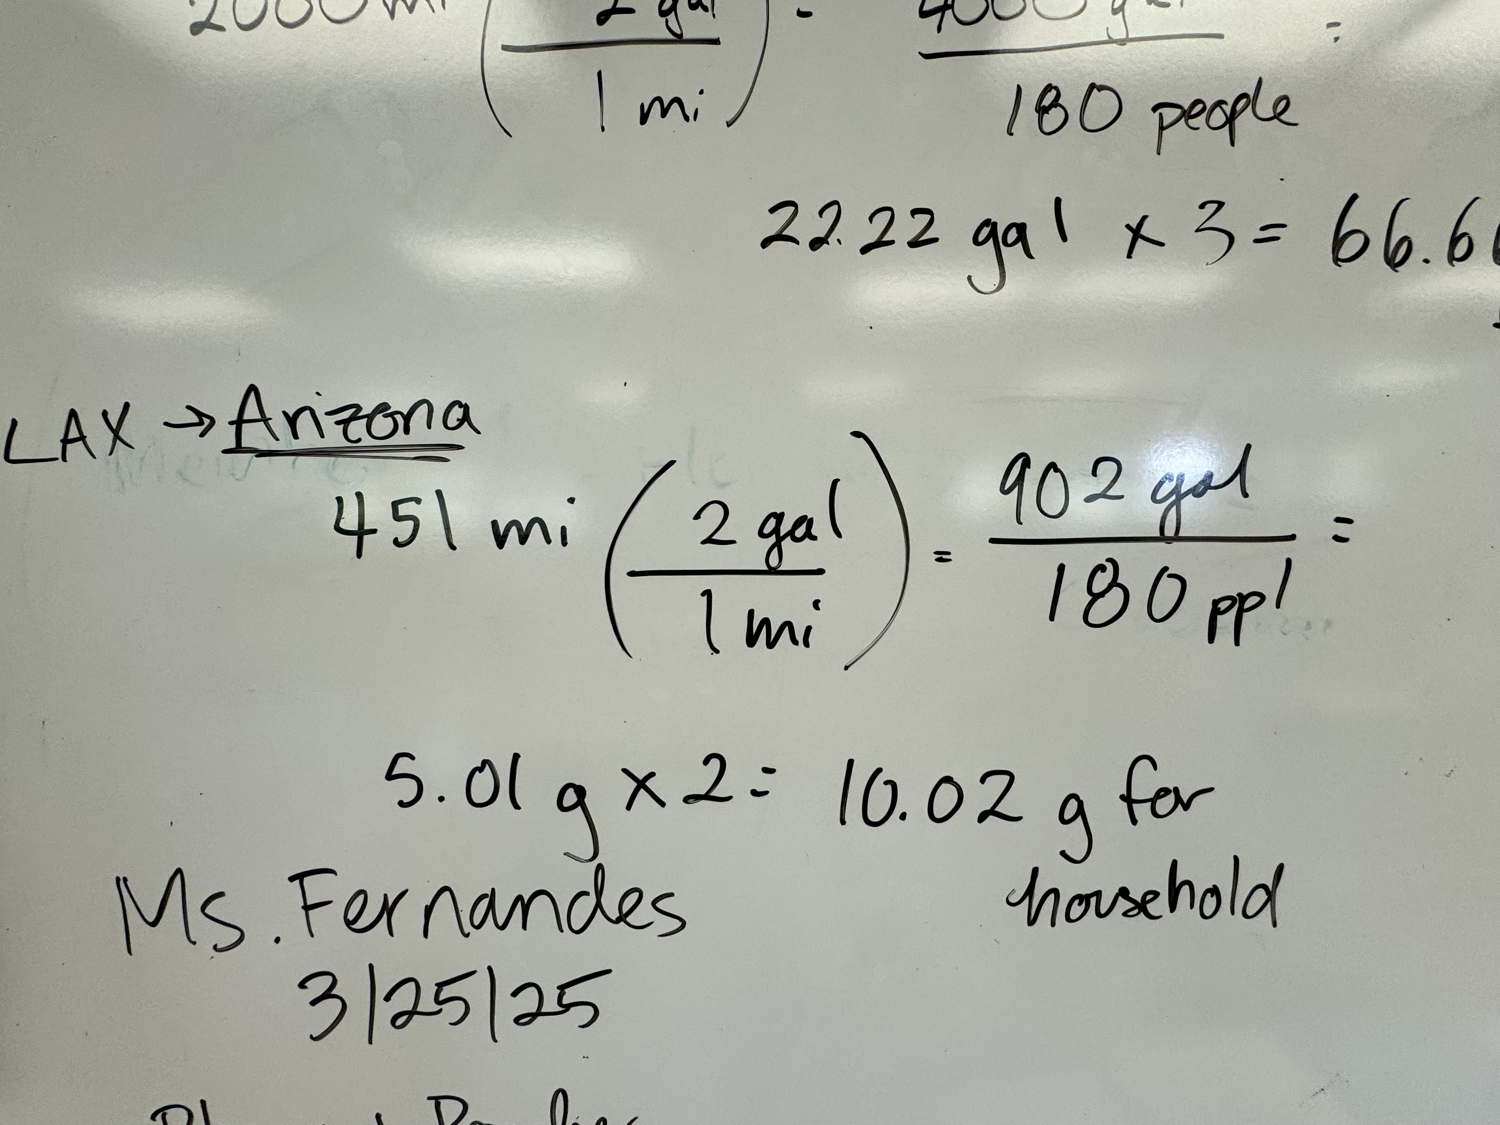 2000 mi ( 2 gal / 1 mi ) = 4000 gal / 180 people =
22.22 gal x 3 = 66.6
LAX → Arizona
451 mi ( 2 gal / 1 mi ) = 902 gal / 180 ppl =
5.01 g x 2 = 10.02 g for
household
Ms. Fernandes
3/25/25